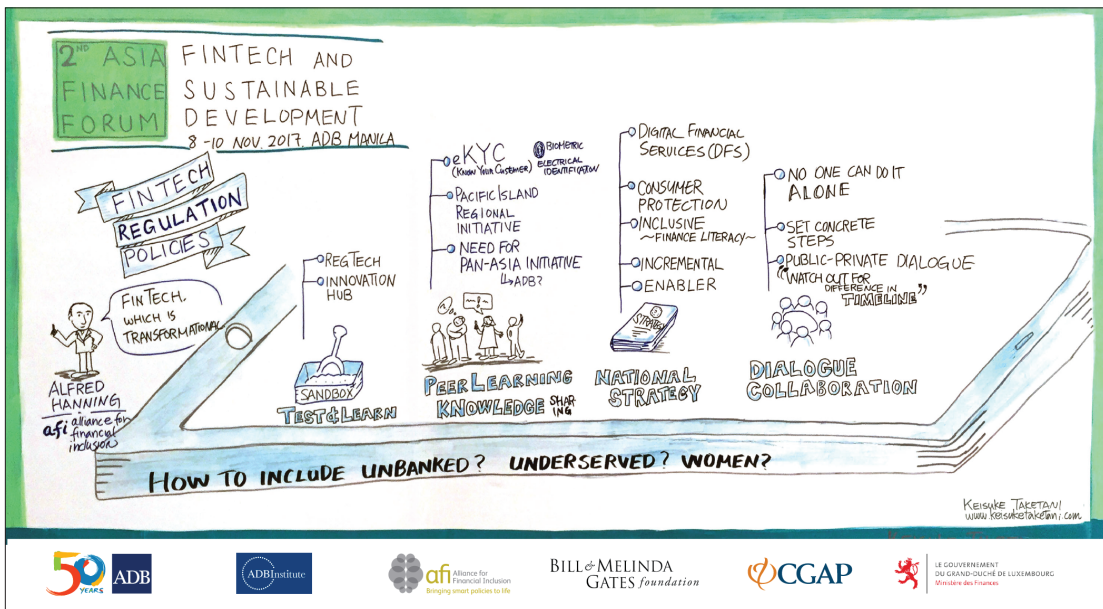 2ND ASIA
FINANCE
FORUM
FINTECH AND
SUSTAINABLE
DEVELOPMENT
8-10 NOV. 2017. ADB MANILA
FINTECH
REGULATION
POLICIES
FINTECH,
WHICH IS
TRANSFORMATIONAL
ALFRED
HANNING
afi alliance for
financial
inclusion
REGTECH
INNOVATION
HUB
SANDBOX
TEST & LEARN
eKYC
(KNOW YOUR CUSTOMER)
BIOMETRIC
ELECTRICAL
IDENTIFICATION
PACIFIC ISLAND
REGIONAL
INITIATIVE
NEED FOR
PAN-ASIA INITIATIVE
↳ADB?
PEER LEARNING
KNOWLEDGE SHAR
ING
DIGITAL FINANCIAL
SERVICES (DFS)
CONSUMER
PROTECTION
INCLUSIVE
~FINANCE LITERACY~
INCREMENTAL
ENABLER
STRATEGY
NATIONAL
STRATEGY
NO ONE CAN DO IT
ALONE
SET CONCRETE
STEPS
PUBLIC-PRIVATE DIALOGUE
"WATCH OUT FOR
DIFFERENCE IN
TIMELINE"
DIALOGUE
COLLABORATION
HOW TO INCLUDE UNBANKED? UNDERSERVED? WOMEN?
KEISUKE TAKETANI
www.keisuketaketani.com
50
YEARS
ADB
ADBInstitute
afi
Alliance for
Financial Inclusion
Bringing smart policies to life
BILL & MELINDA
GATES foundation
CGAP
LE GOUVERNEMENT
DU GRAND-DUCHÉ DE LUXEMBOURG
Ministère des Finances